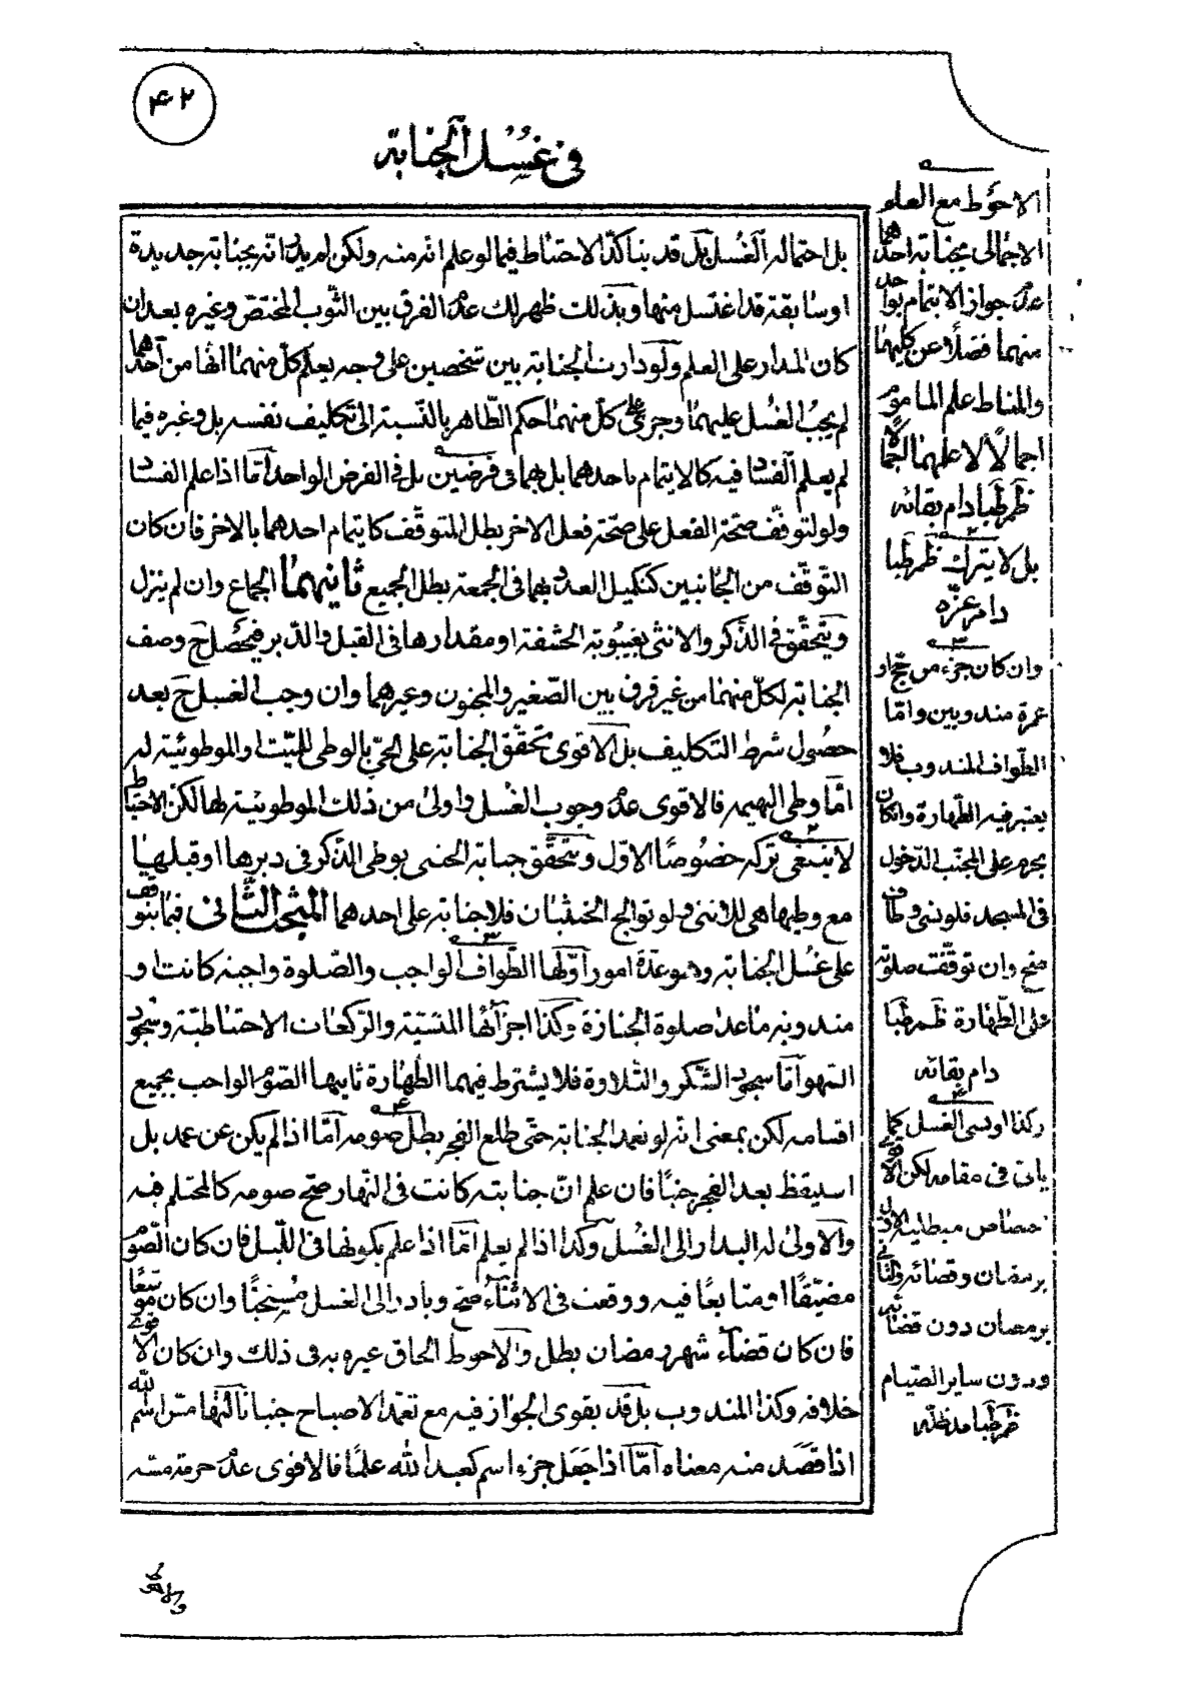 ۴۲
في غسل الجنابة
بل احتمال الغسل بل قد بناكد الاحتياط فيما لو علم انه منه ولكن لم يدر انه بجنابة جديدة
او سابقة قد اغتسل منها وبذلك ظهر لك عدم الفرق بين الثوب المختص وغيره بعد ان
كان المدار على العلم ولو دارت الجنابة بين شخصين على وجه يعلم كل منهما انها من احدهما
لم يجب الغسل عليهما وجرى على كل منهما حكم الطاهر بالنسبة الى تكليف نفسه بل وغيره فيما
لم يعلم الفساد فيه كالايتمام باحدهما بل بهما في فرضين بل في الفرض الواحد امّا اذا علم الفساد
ولو لتوقف صحة الفعل على صحة فعل الاخر بطل المتوقف كايتمام احدهما بالاخر فان كان
التوقف من الجانبين كتكميل العدد بهما في الجمعة بطل الجميع ثانيهما الجماع وان لم ينزل
ويتحقق في الذكر والانثى بغيبوبة الحشفة او مقدارها في القبل والدبر فيحصل ح وصف
الجنابة لكل منهما من غير فرق بين الصغير والمجنون وغيرهما وان وجب الغسل ح بعد
حصول شرط التكليف بل الاقوى تحقق الجنابة على الحي بالوطى للميت او الموطوئية له
امّا وطى البهيمه فالاقوى عدم وجوب الغسل واولى من ذلك الموطوئية لها لكن الاحتياط
لا ينبغى تركه خصوصًا الاول ويتحقق جنابة الخنثى بوطى الذكر في دبرها او قبلها
مع وطيها هي للانثى ولو توالج الخنثيان فلا جنابة على احدهما المبحث الثاني فيما يتوقف
على غسل الجنابة وهو عدة امور اولها الطواف الواجب والصلوة واجبة كانت او
مندوبة ما عدا صلوة الجنازة وكذا اجزائها المنسية والركعات الاحتياطية وسجود
السهو امّا سجود الشكر والتلاوة فلا يشترط فيهما الطهارة ثانيها الصوم الواجب بجميع
اقسامه لكن بمعنى انه لو تعمد الجنابة حتى طلع الفجر بطل صومه امّا اذا لم يكن عن عمد بل
استيقظ بعد الفجر جنبًا فان علم ان جنابته كانت في النهار صح صومه كالمحتلم فيه
والاولى له البدار الى الغسل وكذا اذا لم يعلم امّا اذا علم بكونها في الليل فان كان الصوم
مضيّقًا او متابعًا فيه ووقعت في الاثناء صح وبادر الى الغسل مستحبًا وان كان موسعًا
فان كان قضاء شهر رمضان بطل والاحوط الحاق غيره به في ذلك وان كان الاقوى
خلافه وكذا المندوب بل قد يقوى الجواز فيه مع تعمد الاصباح جنبا ثالثها مسّ اسم الله
اذا قصد منه معناه امّا اذا جعل جزء اسم كعبد الله علمًا فالاقوى عدم حرمة مسه
الاحوط مع العلم
الاجمالي بجنابة احدهما
عدم جواز الايتمام بواحد
منهما فضلًا عن كليهما
والمناط علم الماموم
اجمالًا لا علمهما اجمالًا
ظم طبا دام بقائه
۲
بل لا يترك ظم طبا
دام عزه
۳
وان كان جزء من حج او
عمرة مندوبين وامّا
الطواف المندوب فلا
يعتبر فيه الطهارة وان كان
يحرم على المجنب الدخول
في المسجد فلو نسى وطاف
صح وان توقفت صلوته
على الطهارة ظم طبا
دام بقائه
۴
وكذا لو نسى الغسل كما
ياتى في مقامه لكن الاقوى
اختصاص مبطلية الاول
برمضان وقضائه والثاني
برمضان دون قضائه
ودون ساير الصيام
ظم طبا مد ظله